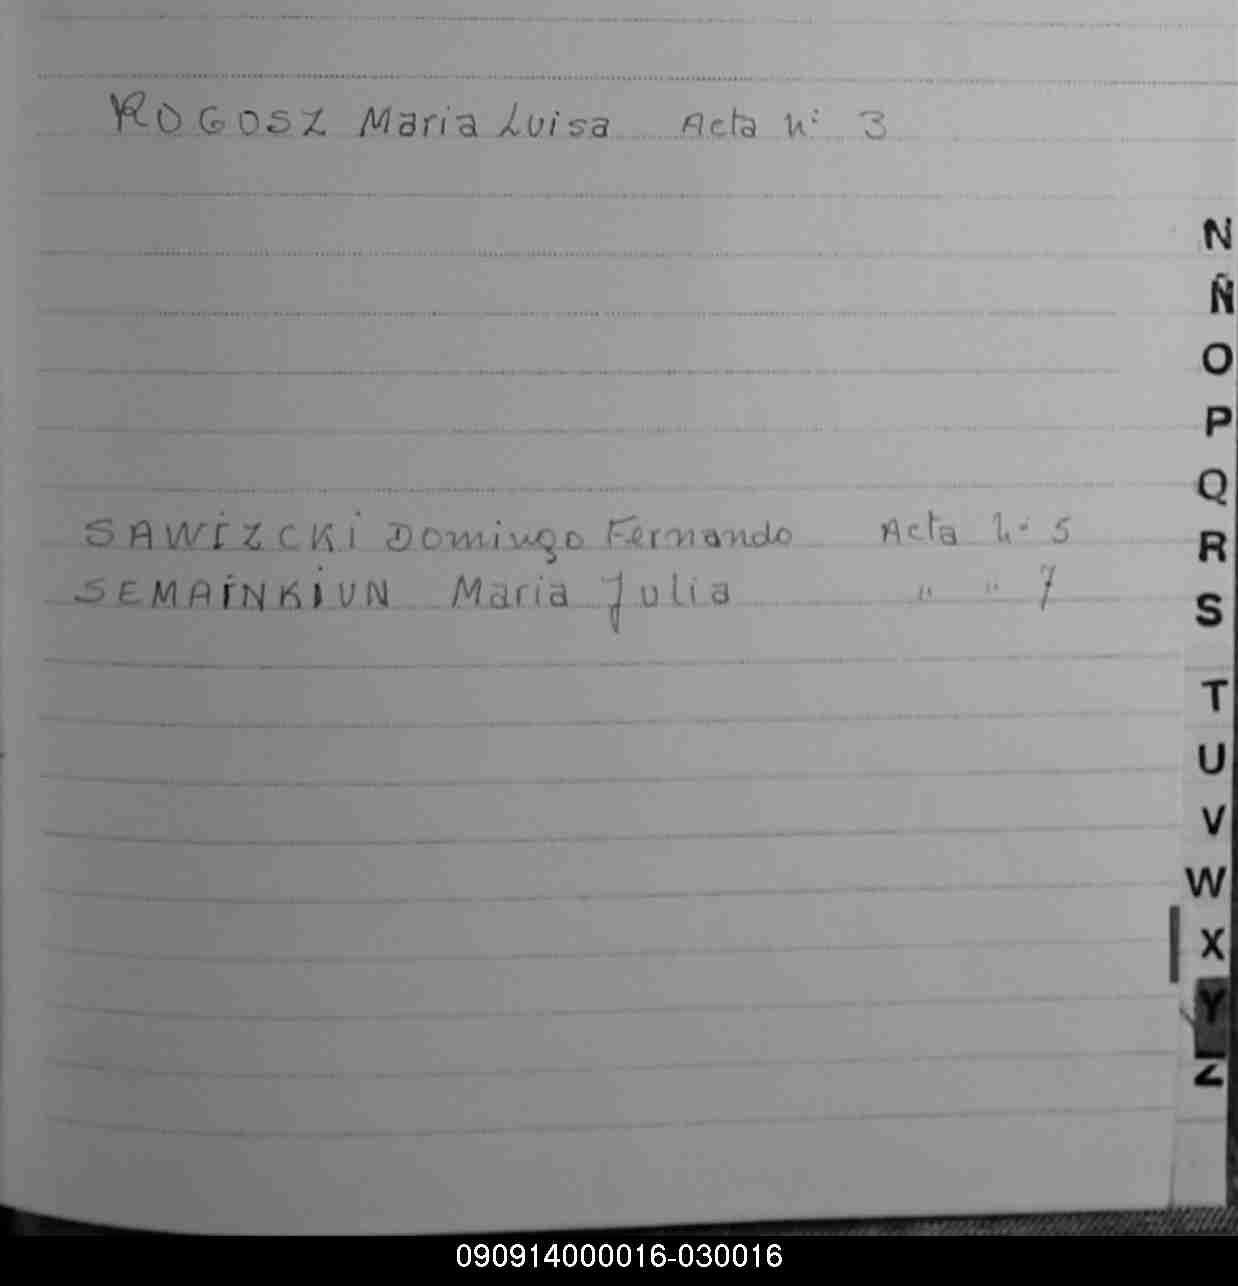 ROGOSZ Maria Luisa Acta n: 3
N
Ñ
O
P
Q
R
SAWIZCKI Domingo Fernando Acta n: 5
SEMAINKIUN Maria Julia " " 7
S
T
U
V
W
X
Y
Z
090914000016-030016